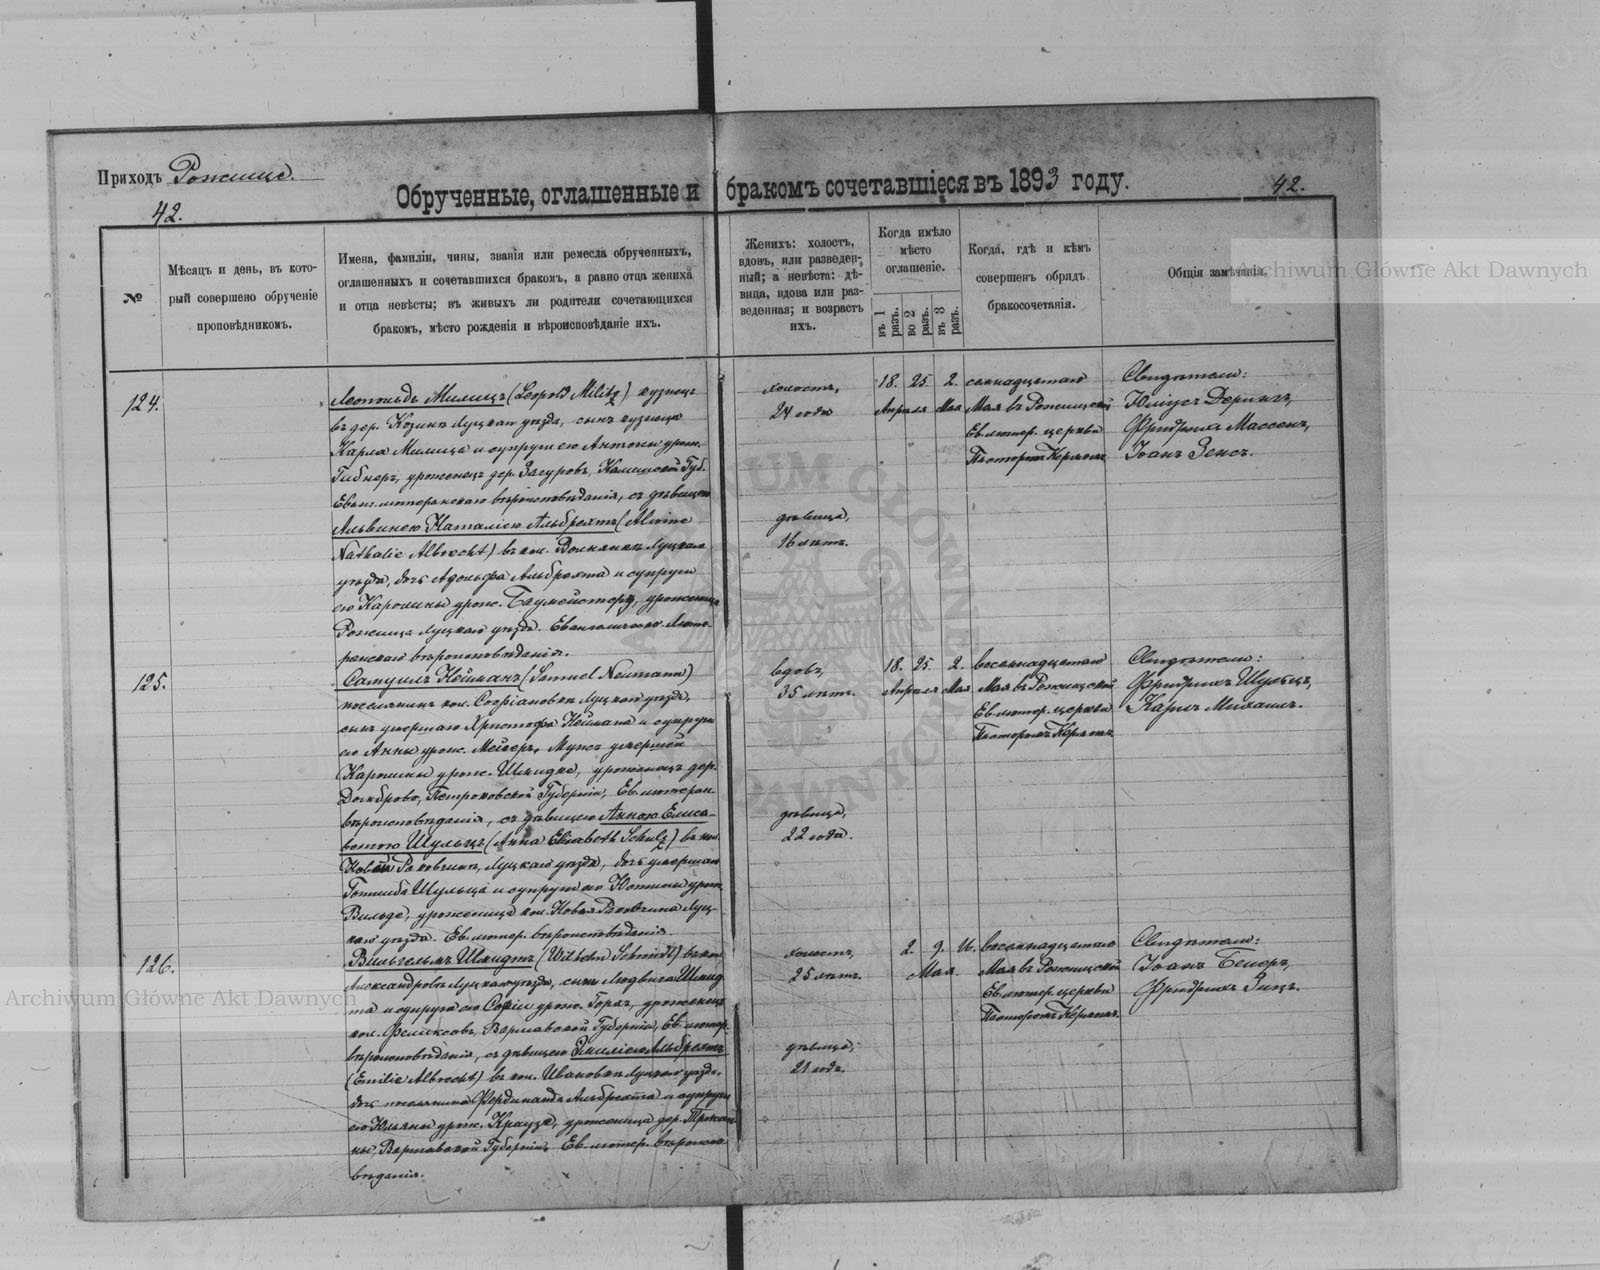 Приходъ Рожище.
Обрученные, оглашенные и бракомъ сочетавшіеся въ 1893 году.
42.
42.
№
Мѣсяцъ и день, въ кото-
рый совершено обрученіе
проповѣдникомъ.
Имена, фамиліи, чины, званія или ремесла обрученныхъ,
оглашенныхъ и сочетавшихся бракомъ, а равно отца жениха
и отца невѣсты; въ живыхъ ли родители сочетающихся
бракомъ, мѣсто рожденія и вѣроисповѣданіе ихъ.
Женихъ: холостъ,
вдовъ, или разведен-
ный; а невѣста: дѣ-
вица, вдова или раз-
веденная; и возрастъ
ихъ.
Когда имѣло
мѣсто
оглашеніе.
въ 1 разъ.
во 2 разъ.
въ 3 разъ.
Когда, гдѣ и кѣмъ
совершенъ обрядъ
бракосочетанія.
Общія замѣчанія.
Archiwum Główne Akt Dawnych
124.
Леопольдъ Милицъ (Leopold Militz) кузнецъ
въ дер. Козинъ Луцкаго уѣзда, сынъ кузнеца
Карла Милица и супруги его Антоны урож.
Гибнеръ, уроженецъ дер. Загуровъ, Калишской Губ.
Еванг. лютеранскаго вѣроисповѣданія, съ дѣвицею
Альвиною Наталіею Альбрехтъ (Alvine
Nathalie Albrecht) въ кол. Волнянкѣ Луцкаго
уѣзда, дочь Адольфа Альбрехта и супруги
его Каролины урож. Баумейстеръ, уроженица
Рожища Луцкаго уѣзда. Евангелическо-Люте-
ранскаго вѣроисповѣданія.
холостъ,
24 года
дѣвица,
16 лѣтъ.
18. 25 2.
Апрѣля Мая
семнадцатаго
Мая въ Рожищской
Ев. лютер. церкви
Пасторомъ Керномъ
Свидѣтели:
Юліусъ Дерингъ,
Фридрихъ Массенъ,
Іоанъ Зенсъ.
125.
Самуилъ Нейманъ (Samuel Neumann)
поселянинъ кол. Софіановка Луцкаго уѣзда,
сынъ умершаго Христофа Неймана и супруги
его Анны урож. Мейеръ, Мужъ умершей
Каролины урож. Шмидке, уроженецъ дер.
Домброво, Петроковской Губерніи, Ев. лютеран.
вѣроисповѣданія, съ дѣвицею Анною Елиса-
ветою Шульцъ (Anna Elisabeth Schulz) въ кол.
Новой Раковщинѣ, Луцкаго уѣзда, дочь умершаго
Готлиба Шульца и супруги его Юстины урож.
Вильде, уроженица кол. Новая Раковщина Луц-
каго уѣзда. Ев. лютер. вѣроисповѣданія.
вдовъ,
35 лѣтъ.
дѣвица,
22 года.
18. 25. 2.
Апрѣля Мая
восемнадцатаго
Мая въ Рожищской
Ев. лютер. церкви
Пасторомъ Керномъ
Свидѣтели:
Фридрихъ Шульцъ,
Карлъ Михаилъ.
126.
Вильгельмъ Шмидтъ (Wilhelm Schmidt) въ кол.
Александровкѣ Луцкаго уѣзда, сынъ Людвига Шмид-
та и супруги его Софіи урож. Горнъ, уроженецъ
кол. Феликсовъ, Варшавской Губерніи, Ев. лютер.
вѣроисповѣданія, съ дѣвицею Эмиліею Альбрехтъ
(Emilie Albrecht) въ кол. Ивановкѣ Луцкаго уѣзда,
дочь поселянина Фердинанда Альбрехта и супруги
его Юльяны урож. Краузе, уроженица дер.
Варшавской Губерніи, Ев. лютер. вѣроиспо-
вѣданія.
холостъ,
25 лѣтъ.
дѣвица,
21 годъ.
2. 9. 16.
Мая.
восемнадцатаго
Мая въ Рожищской
Ев. лютер. церкви
Пасторомъ Керномъ.
Свидѣтели:
Іоанъ
Фридрихъ Зицъ.
Archiwum Główne Akt Dawnych